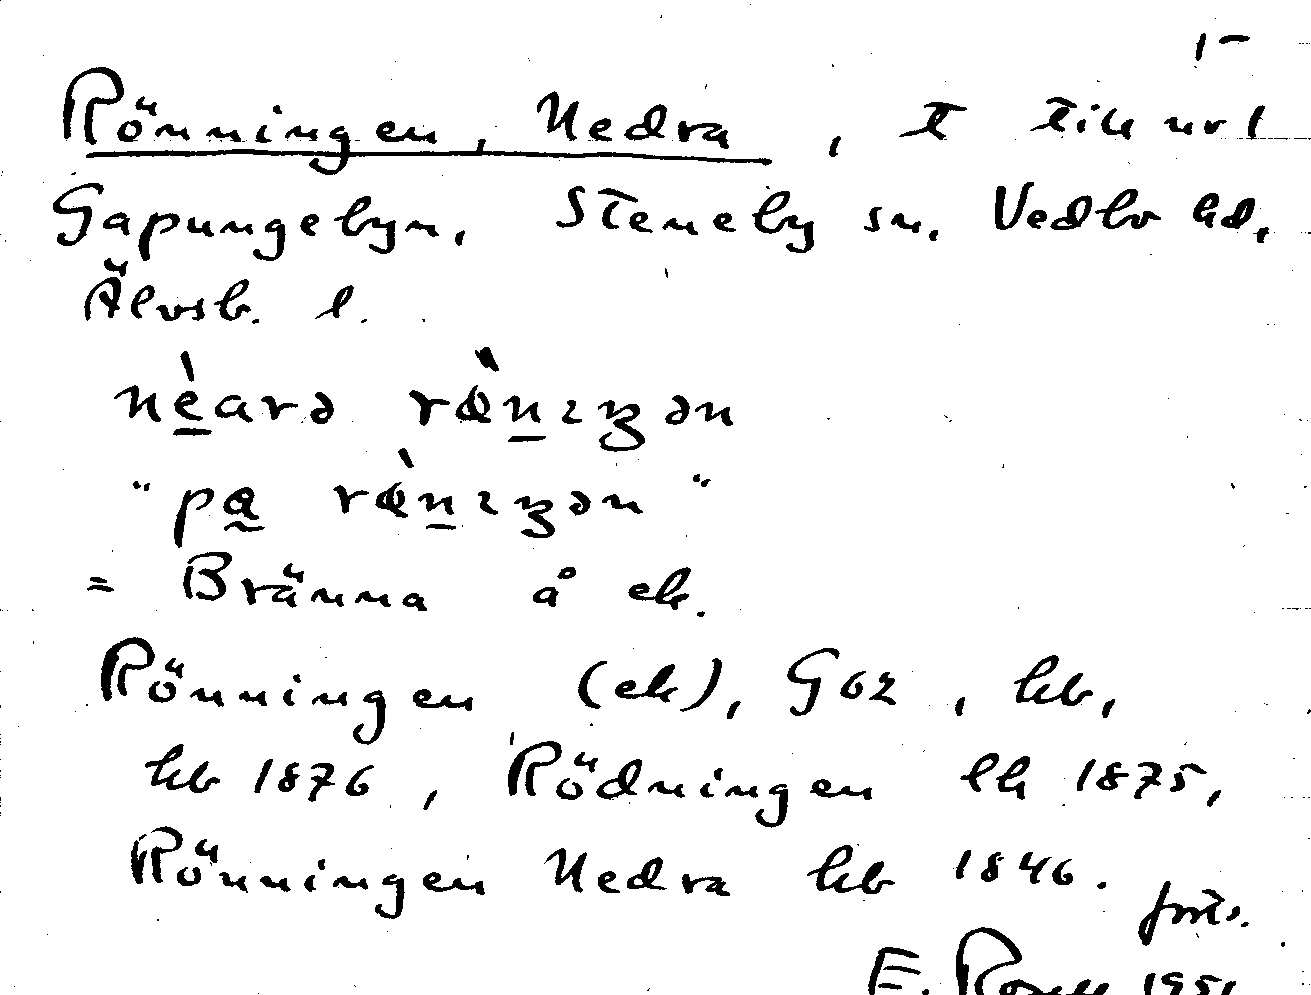 1-
Rönningen, Nedra, t till nr 1
Gapungebyn. Steneby sn. Vedbo hd.
Älvsb. l.
nèarə rὰnıŋən
"pa rὰnıŋən"
= Bränna å ek.
Rönningen (ek), Goz, kb,
hb 1876, Rödningen lh 1875,
Rönningen Nedra kb 1846.
forts.
E. 1951